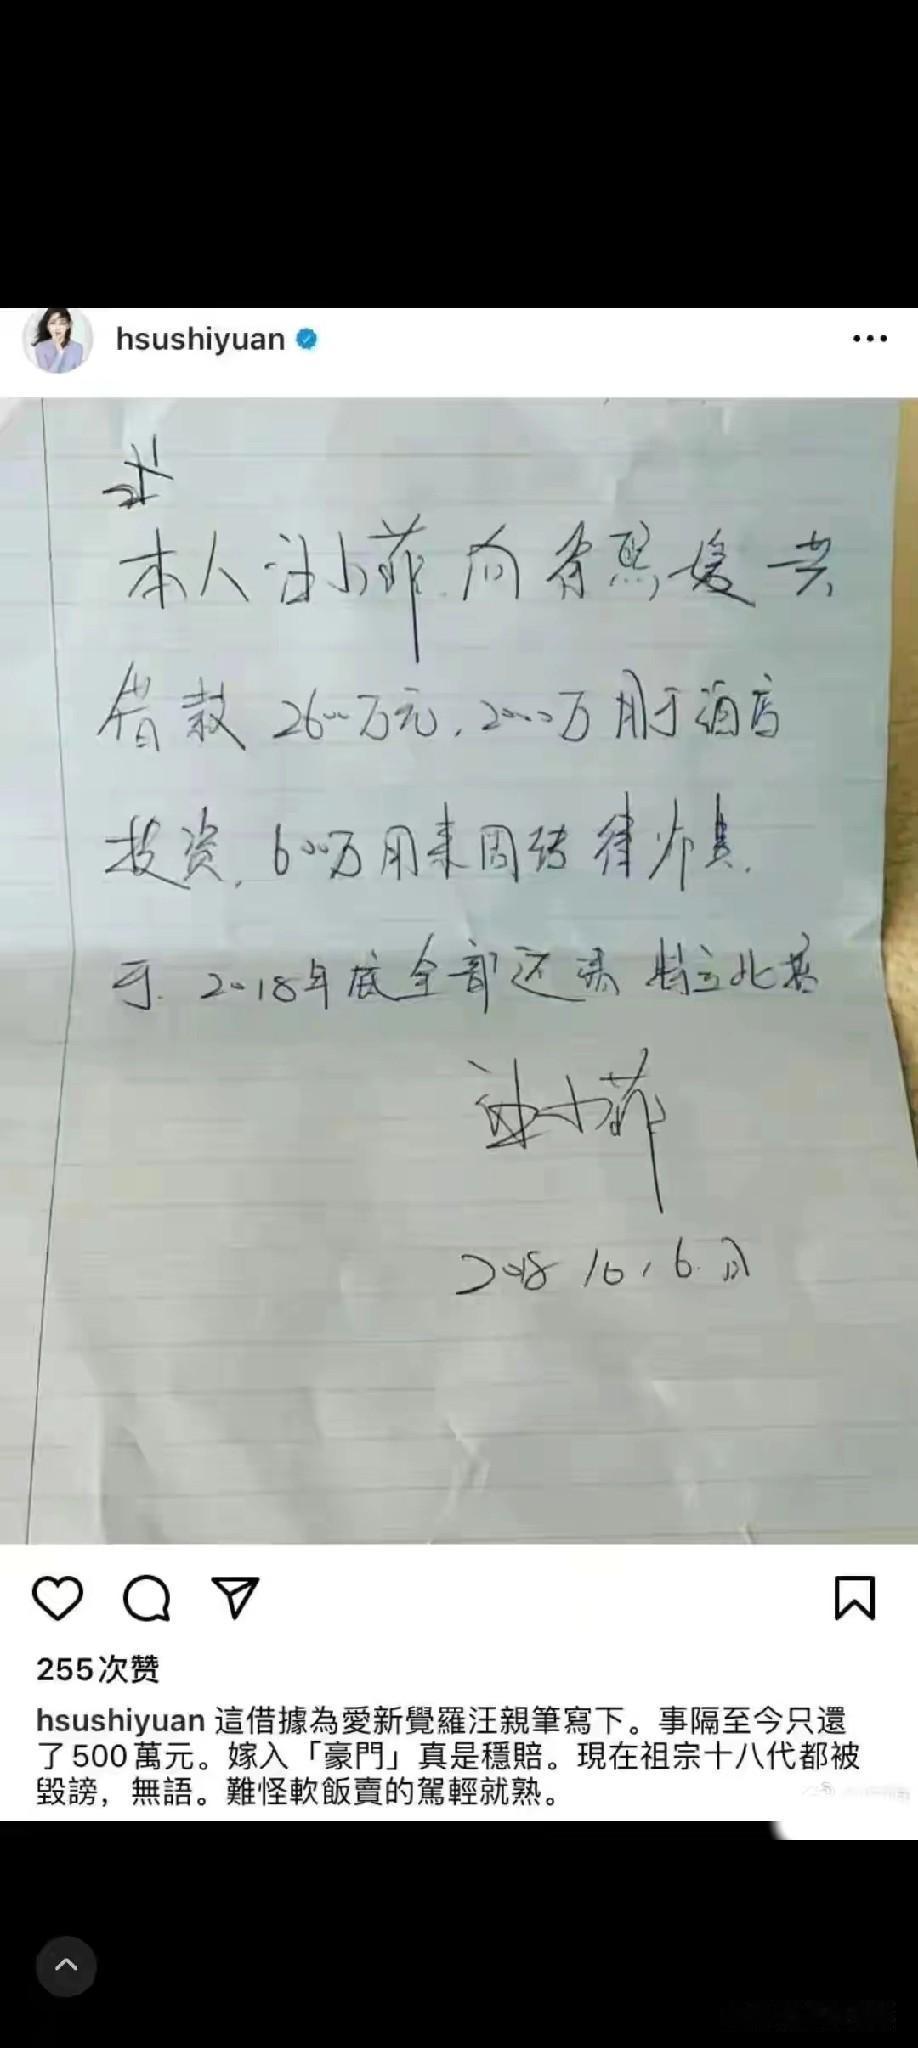 hsushiyuan
本人汪小菲.向徐熙媛共
借款 2600万元.2000万用于酒店
投资.600万用来周转律师费.
于.2018年底全部还清 特立此据
汪小菲
2018 10.16.
255次赞
hsushiyuan 這借據為愛新覺羅汪親筆寫下。事隔至今只還
了500萬元。嫁入「豪門」真是穩賠。現在祖宗十八代都被
毀謗，無語。難怪軟飯賣的駕輕就熟。